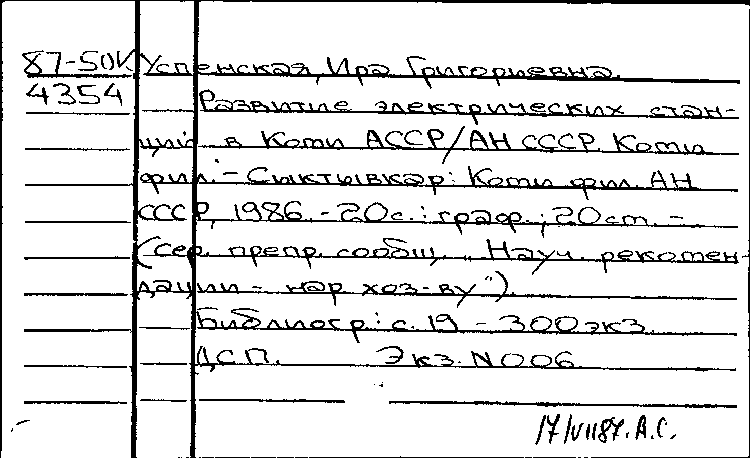 87-50К Успенская, Ира Григориевна.
4354 Развитие электрических стан-
ций в Коми АССР/АН СССР. Коми
фил. - Сыктывкар: Коми фил. АН
СССР, 1986. - 20с.: граф.; 20см. -
(Сер. препр. сообщ. "Науч. рекомен-
дации - нар. хоз-ву").
Библиогр.: с. 19 - 300экз.
ДСП. Экз. N006
17/VII87. А.С.